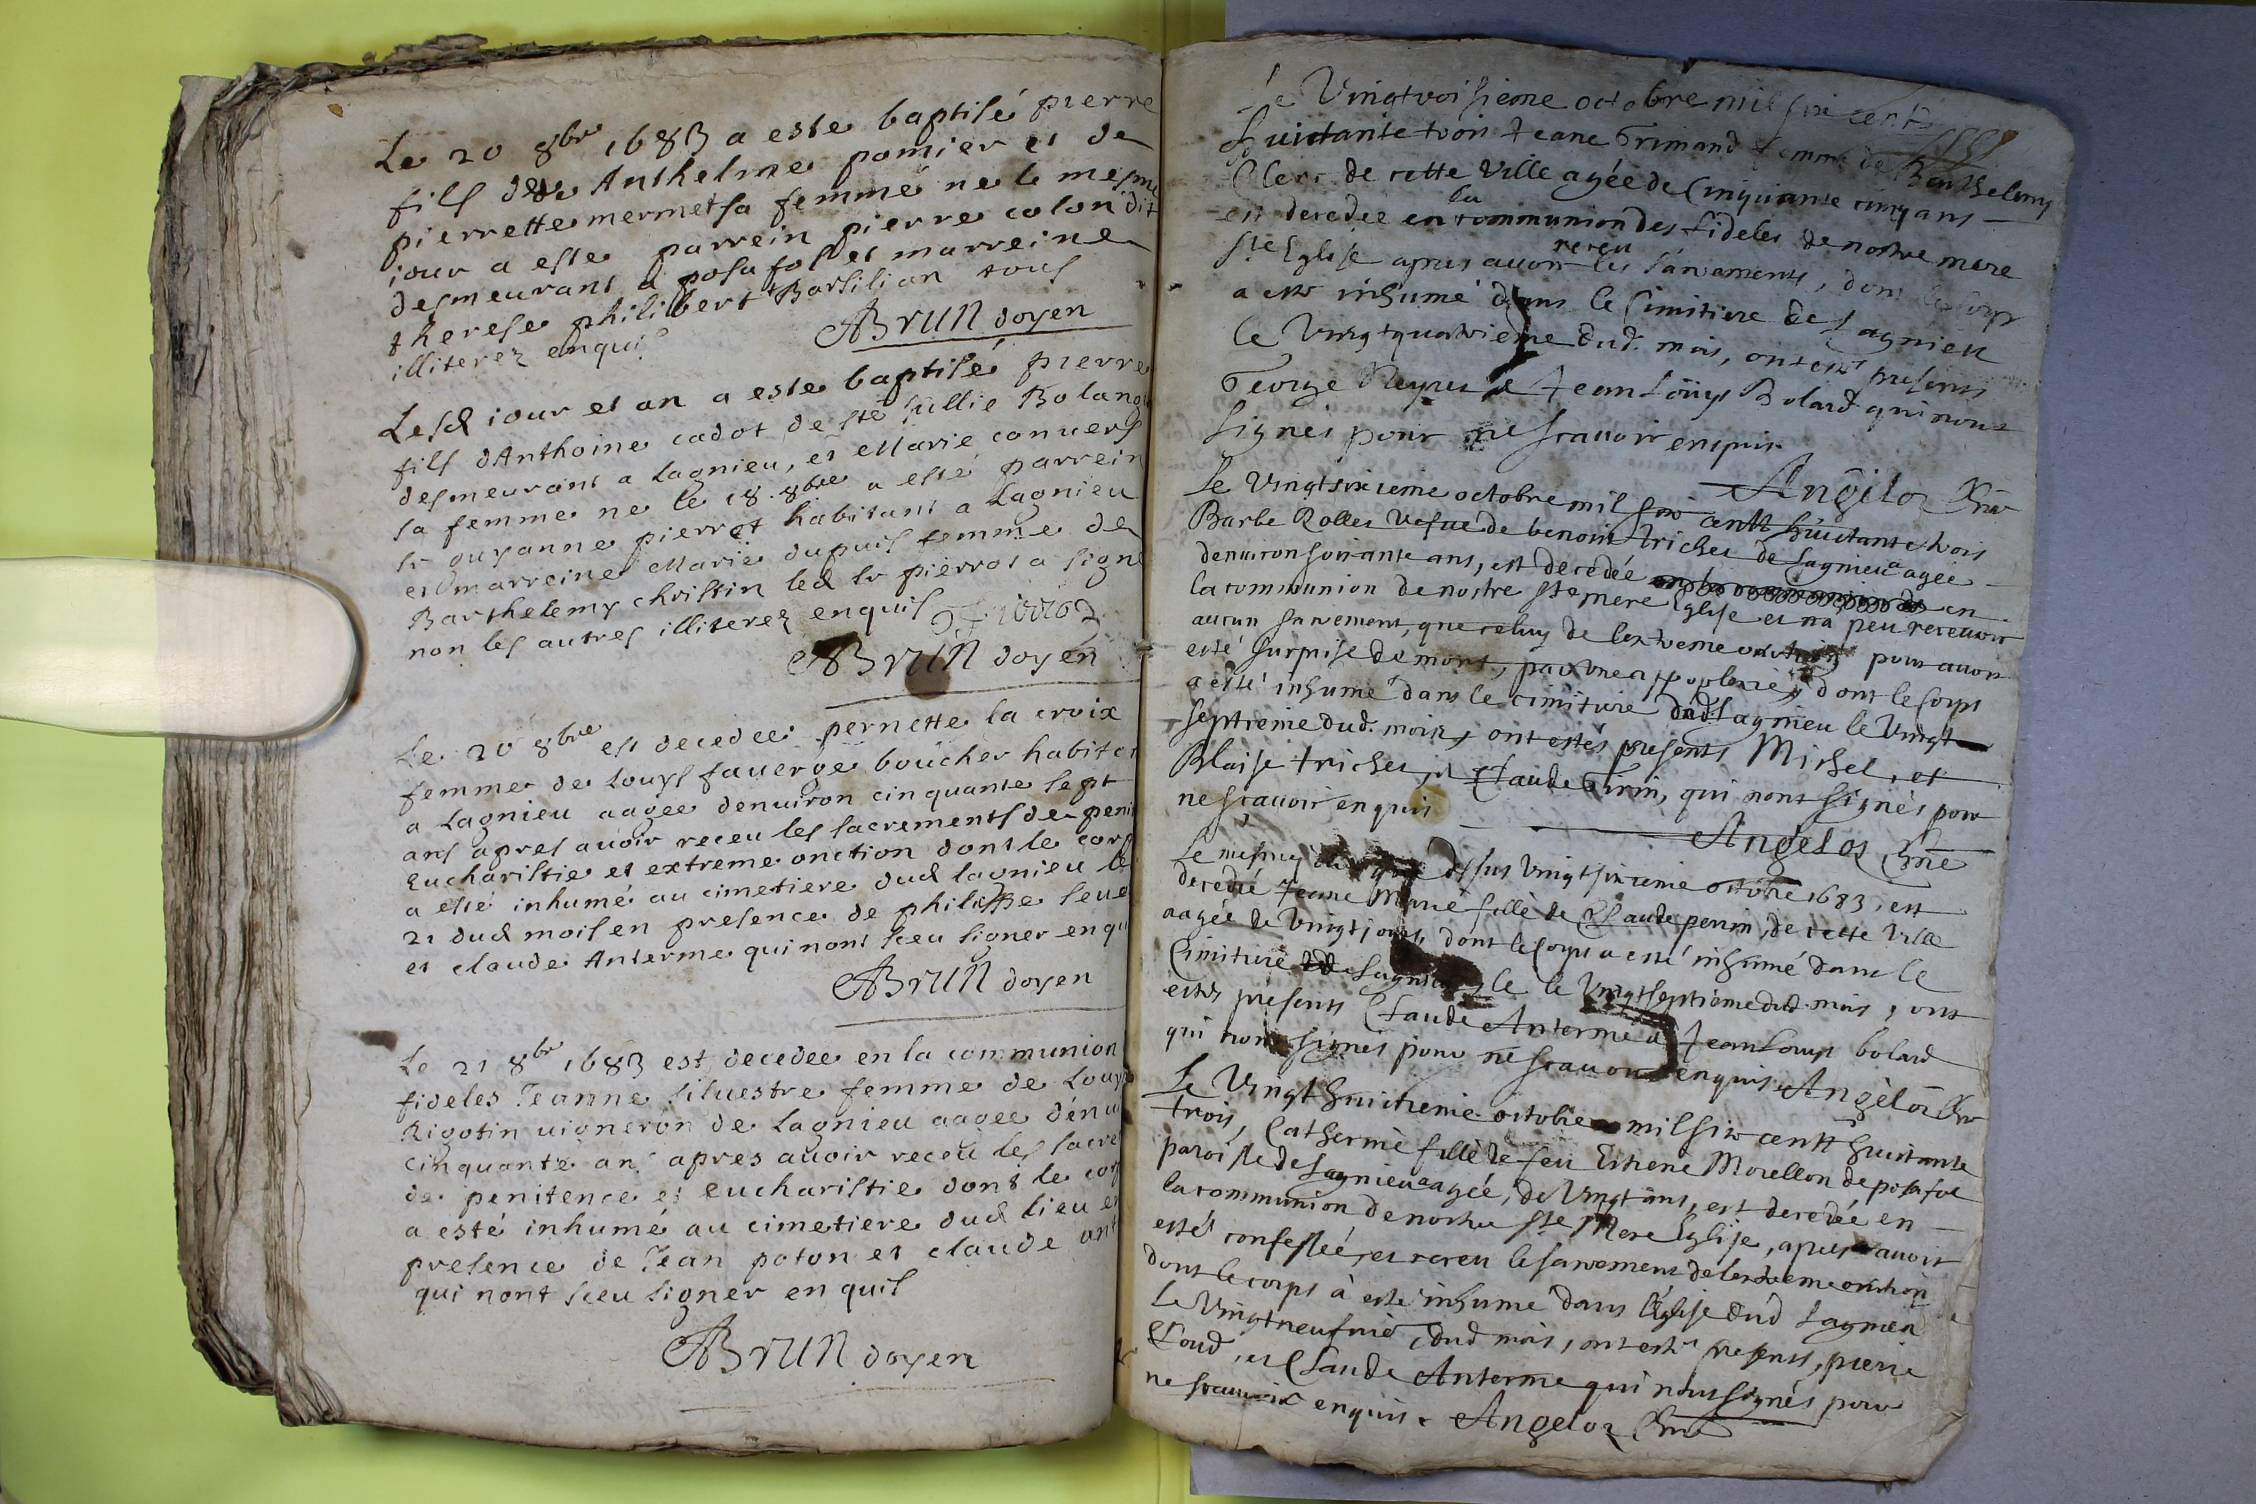 Le 20 8bre 1683 a este baptisé pierre
fils de Anthelme pomier et de
pierrette mermet sa femme ne le mesme
iour a este parrein pierre colon dit
desmeurant a posafol et marreine
therese philibert Barsilian tous
illiterez enquis
ABrun doyen
Lesd iour et an a este baptisé pierre
fils dAnthoine cadot de ste Jullie
desmeurant a Lagnieu, et Marie conuers
sa femme ne le 18 8bre a esté parrein
sr guyanne pierrot habitant a Lagnieu
et marreine Marie dupuis femme de
Barthelemy christin led sr pierrot a signe
non les autres illiterez enquis
ABrun doyen
Le 20 8bre est decedee pernette la croix
femme de Louys fauerge boucher
a Lagnieu aagee denuiron cinquante sept
ans apres auoir receu les sacrements de
Eucharistie et extreme onction dont le corps
a esté inhumé au cimetiere dud lagnieu le
21 dud mois en presence de philippe
et claude Anterme qui nont sceu signer
ABrun doyen
Le 21 8bre 1683 est decedee en la communion
fideles Jeanne siluestre femme de Louys
Rigotin uigneron de Lagnieu aagee
cinquante ans apres auoir receu les
de penitence et eucharistie dont le
a esté inhumé au cimetiere dud lieu en
presence de Jean poton et claude
qui nont sceu signer enquis
ABrun doyen
Le Vingtroisieme octobre mil six centz
huictante trois Jeane Grimand femme de Barthelemy
Clerc de cette Ville agée de Cinquante cinq ans
est decedee en la communion des fideles de nostre mere
Ste Eglise apres auoir receu les sacrements, dont le corps
a este inhumé dans le Cimitiere de Lagnieu
le Vingtquatrieme dud. mois, ont esté presents
George Reynet et Jean Loüys Bolard qui nont
signés pour ne scauoir enquis
Angeloz
Le Vingtsixieme octobre mil six centz huictante trois
Barbe Rolles Vefue de benoist trichet de Lagnieu agée
denuiron soixante ans, est decedée en
la communion de nostre ste mere Eglise et na peu receuoir
aucun sacrement, que celuy de lextreme onction pour auoir
esté surprise de mort, par vne appoplexie, dont le Corps
a esté inhumé dans le cimitiere dud. Lagnieu le Vingt
septieme dud. mois, ont estés presents Michel, et
Blaise trichet, et Claude Firin, qui nont signés pour
ne scauoir enquis
Angeloz
Le mesme dessus vingtsixieme octobre 1683, est
decedée Jeane Marie fille de Claude perrin, de cette Ville
aagée de Vingt jours, dont le Corps a esté inhumé dans le
Cimitiere Lagnieu le Vingtseptieme dud. mois, ont
estés presents Claude Anterme et Jean Louys bolard
qui nont signés pour ne scauoir enquis Angeloz
Le Vingt huictieme octobre mil six centz huictante
trois, Catherine fille de feu Estiene Morellon de posafol
paroisse de Lagnieu agée, de Vingt ans, est decedée en
la communion de nostre ste Mere Eglise, apres auoir
estés confessée, et receu le sacrement de lextreme onction
dont le corps à esté inhumé dans l'église dud Lagnieu
le Vingt neufuie dud mois, ont estés presents, pierre
et Claude Anterme qui nont signés pour
ne scauoir enquis. Angeloz